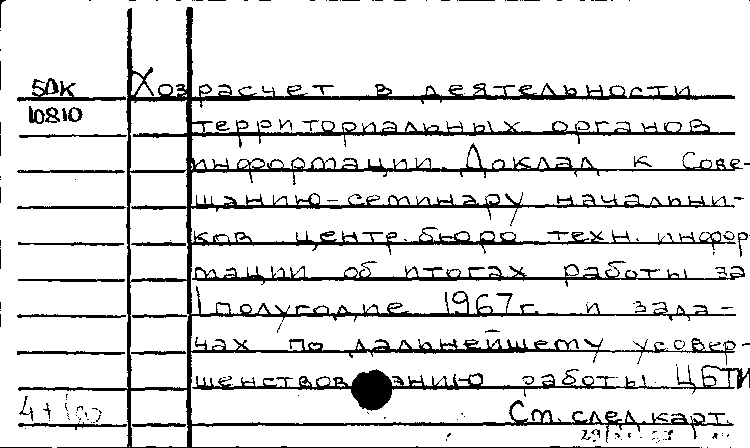 50к Хозрасчет в деятельности
10810
территориальных органов
информации. Доклад к Сове-
щанию-семинару начальни-
ков центр. бюро техн. инфор-
мации об итогах работы за
I полугодие 1967г. и зада-
чах по дальнейшему усовер-
шенствованию работы ЦБТИ
См. след. карт.